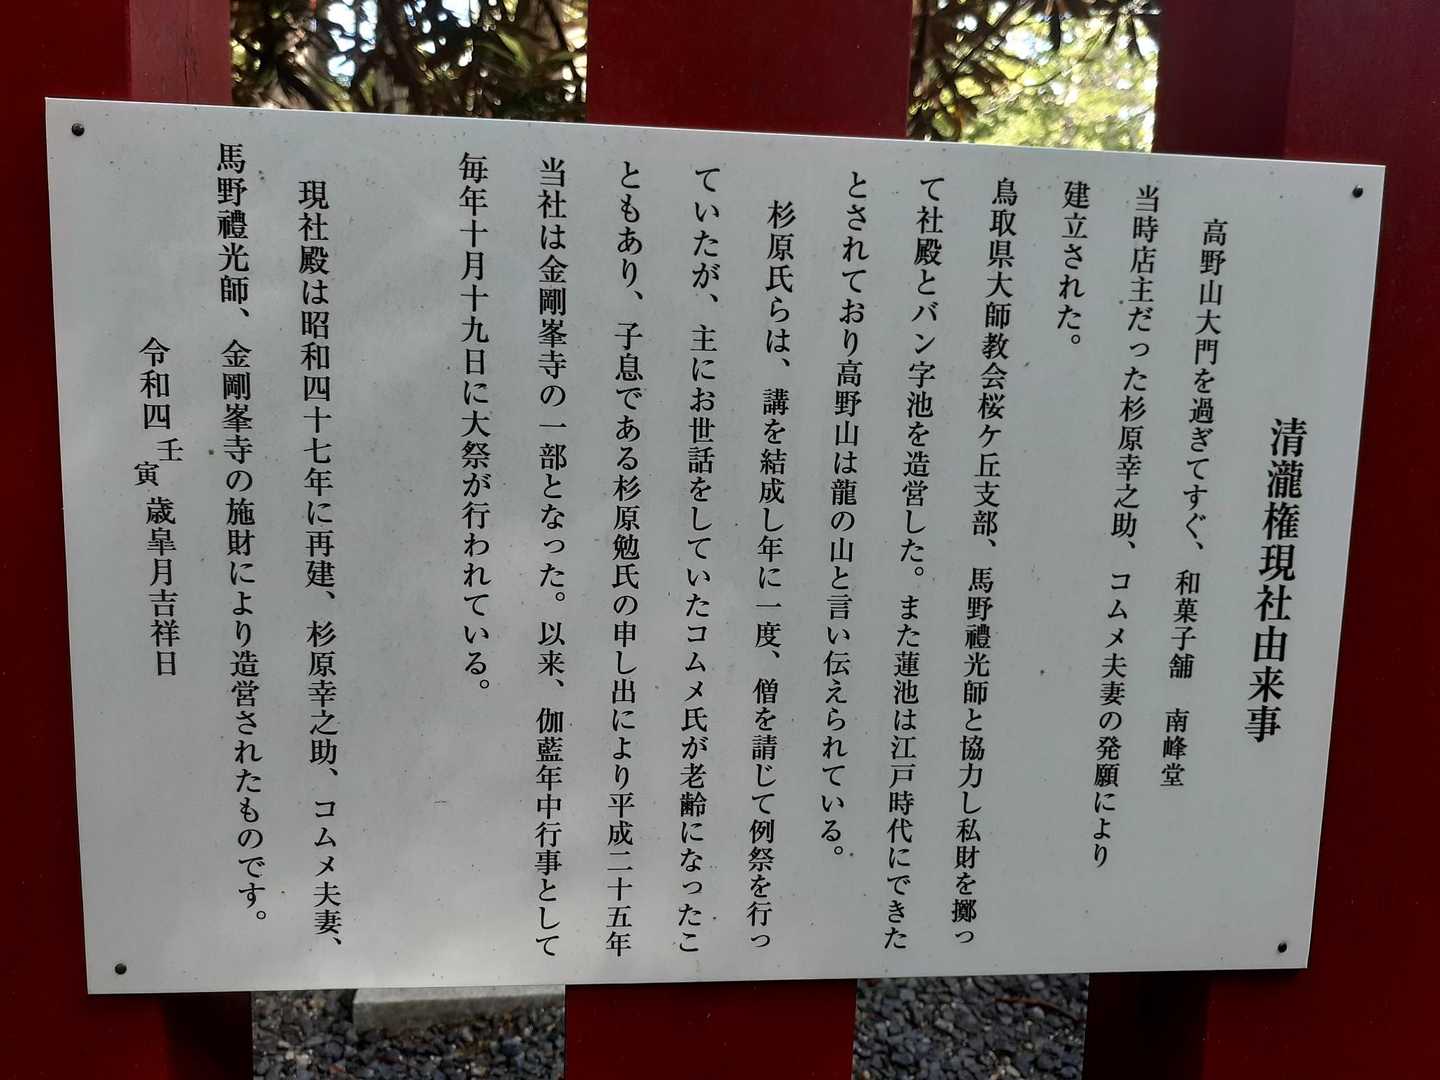 清瀧権現社由来事
高野山大門を過ぎてすぐ、和菓子舗　南峰堂
当時店主だった杉原幸之助、コムメ夫妻の発願により
建立された。
鳥取県大師教会桜ケ丘支部、馬野禮光師と協力し私財を擲っ
て社殿とバン字池を造営した。また蓮池は江戸時代にできた
とされており高野山は龍の山と言い伝えられている。
杉原氏らは、講を結成し年に一度、僧を請じて例祭を行っ
ていたが、主にお世話をしていたコムメ氏が老齢になったこ
ともあり、子息である杉原勉氏の申し出により平成二十五年
当社は金剛峯寺の一部となった。以来、伽藍年中行事として
毎年十月十九日に大祭が行われている。
現社殿は昭和四十七年に再建、杉原幸之助、コムメ夫妻、
馬野禮光師、金剛峯寺の施財により造営されたものです。
令和四壬寅歳皐月吉祥日